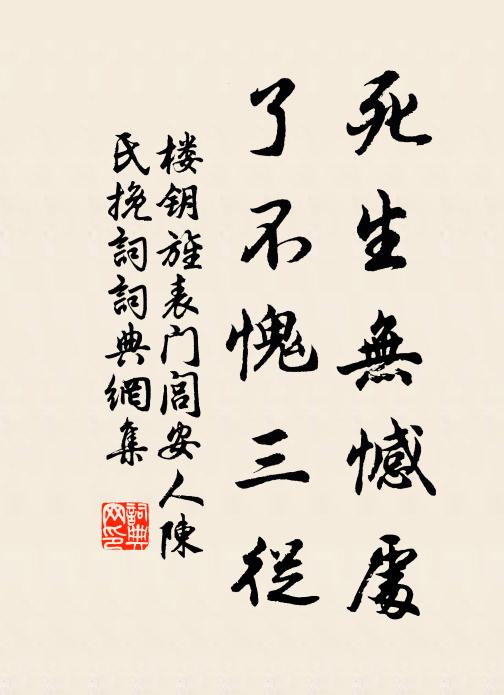 死生無憾處
了不愧三從
楼钥旌表门闾安人陳
氏挽詞詞典網集
詞典
网印